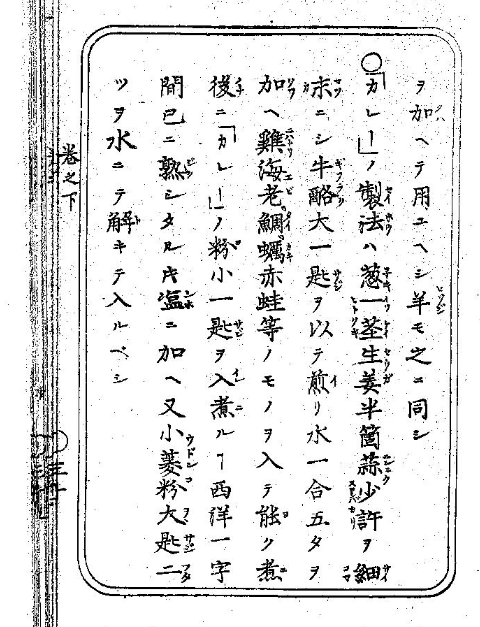 ヲ加ヘテ用ユヘシ羊モ之ニ同シ
○「カレー」ノ製法ハ葱一茎生姜半箇蒜少許ヲ細
末ニシ牛酪大一匙ヲ以テ煎リ水一合五夕ヲ
加ヘ鶏海老鯛蠣赤蛙等ノモノヲ入テ能ク煮
後ニ「カレー」ノ粉小一匙ヲ入煮ルヿ西洋一字
間已ニ熟シタルキ塩ニ加ヘ又小麦粉大匙二
ツヲ水ニテ解キテ入ルベシ
巻之下